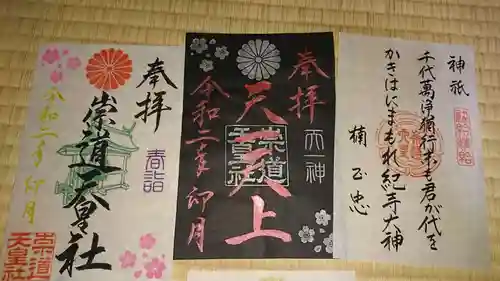 奉拝
崇道天皇社
春詣
令和二年卯月
崇道
天皇社
奉拝
天一天上
天一神
崇道
天皇社
令和二年卯月
神祇
千代萬
も君が代を
かきはにまもれ紀寺大神
楠正忠